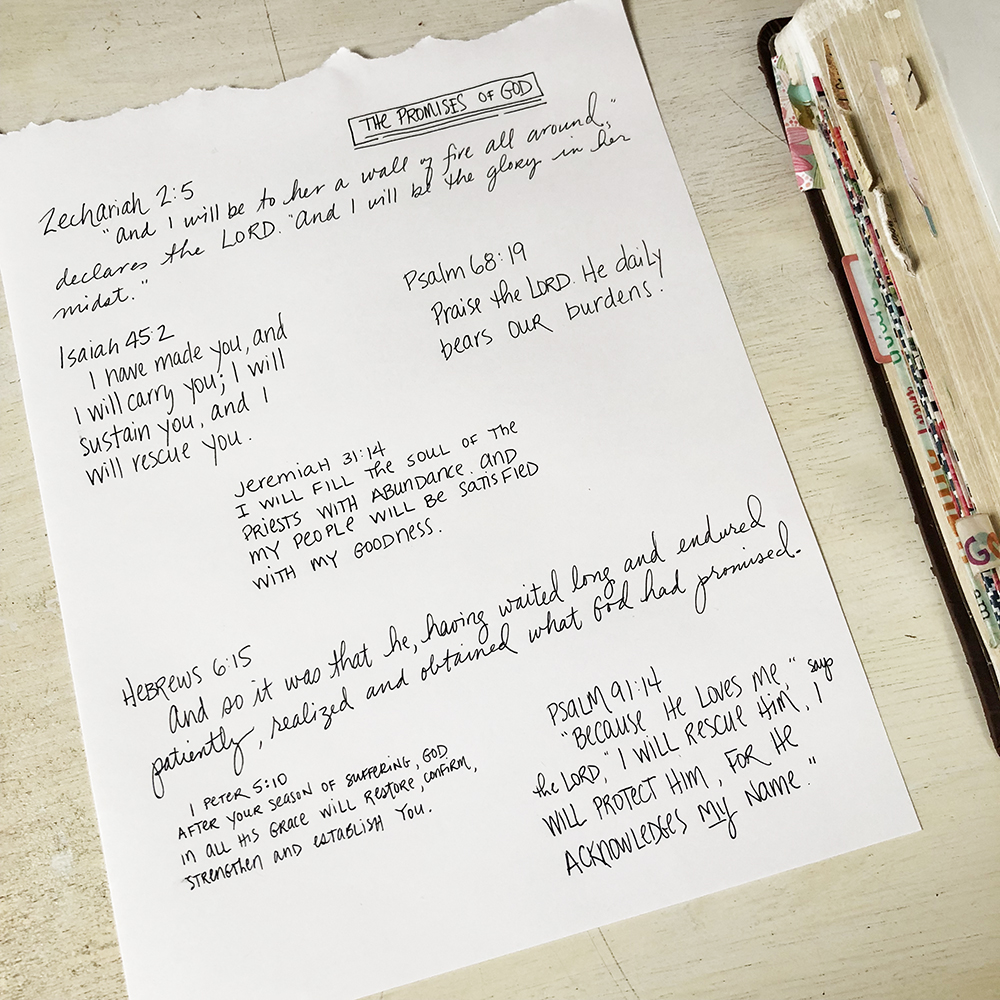 THE PROMISES OF GOD
Zechariah 2:5
"And I will be to her a wall of fire all around,"
declares the LORD. "And I will be the glory in her
midst."
Psalm 68:19
Praise the LORD. He daily
bears OUR burdens!
Isaiah 45:2
I have made you, and
I will carry you; I will
sustain you, and I
will rescue you.
Jeremiah 31:14
I WILL FILL THE SOUL OF THE
PRIESTS WITH ABUNDANCE. AND
MY PEOPLE WILL BE SATISFIED
WITH MY GOODNESS.
HEBREWS 6:15
And so it was that he, having waited long and endured
patiently, realized and obtained what God had promised.
PSALM 91:14
"BECAUSE HE LOVES ME," says
the LORD, "I WILL RESCUE HIM, I
WILL PROTECT HIM, FOR HE
ACKNOWLEDGES MY NAME."
1 PETER 5:10
AFTER YOUR SEASON OF SUFFERING, GOD
IN ALL HIS GRACE WILL RESTORE, CONFIRM,
STRENGTHEN AND ESTABLISH YOU.